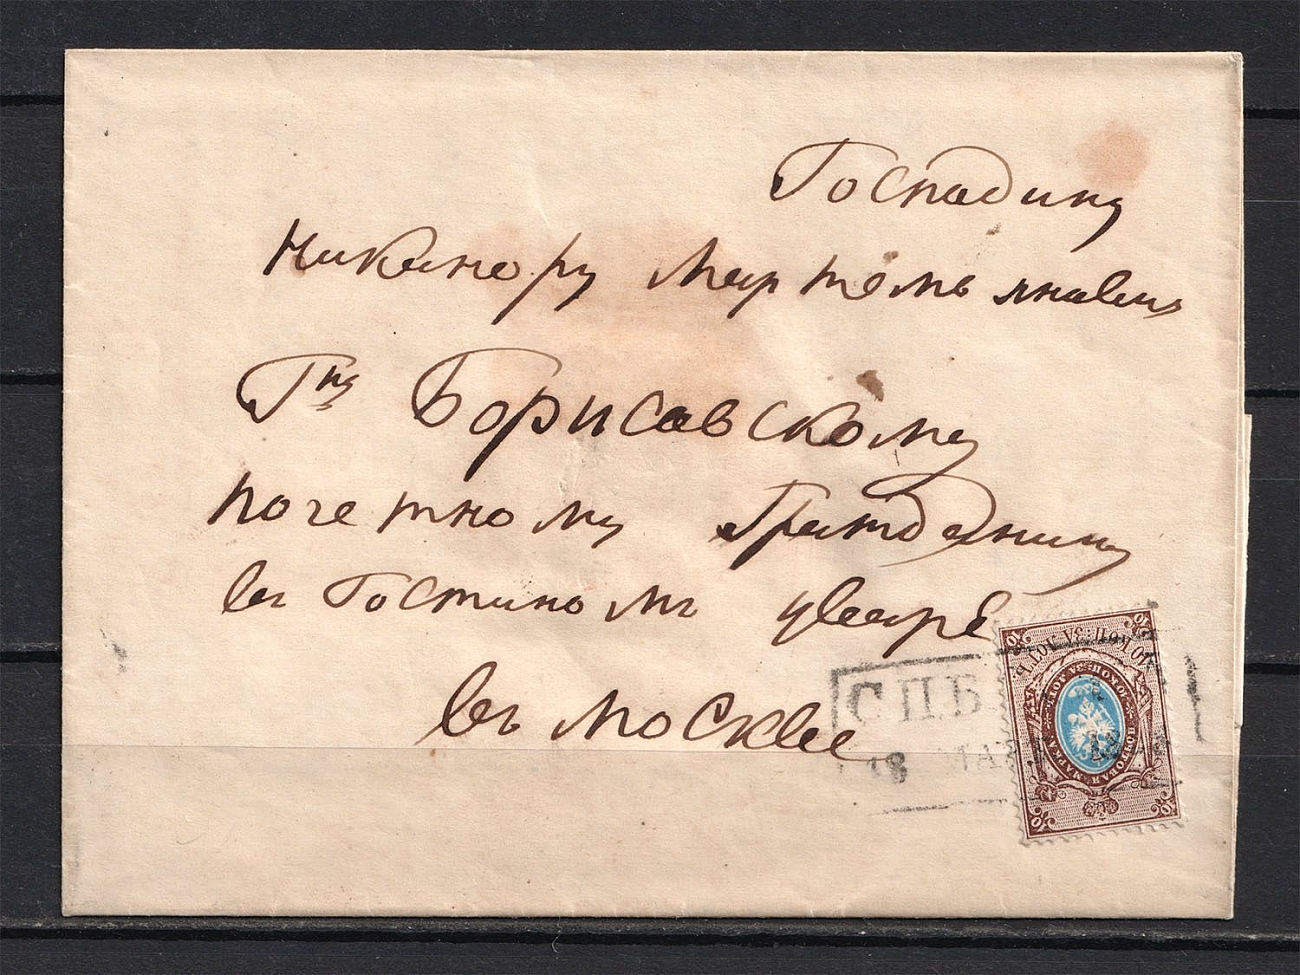 Господину
Никанору Мартемьяновичу
Гну Борисовскому
почетному Гражданину
въ Гостиномъ дваре
въ москве
С.П.Б.
18 МАР
ПОЧТОВАЯ МАРКА
10
10
10
10